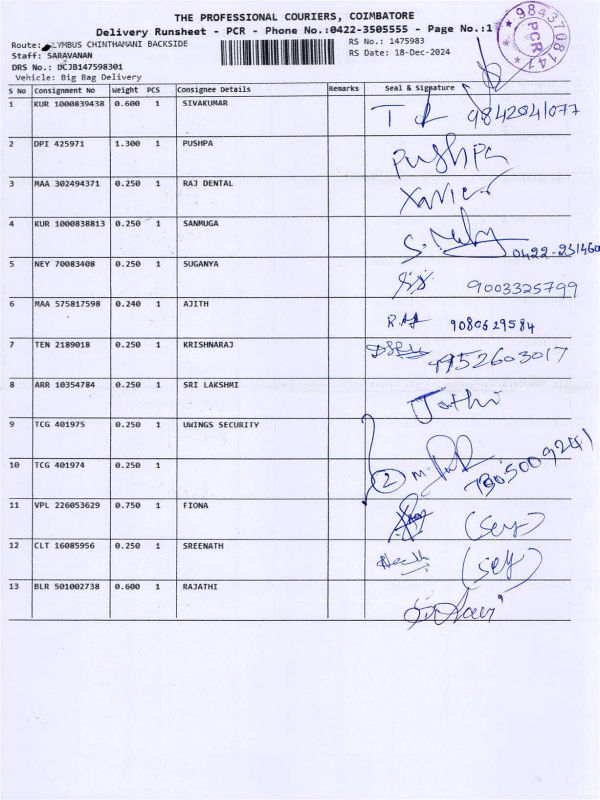 THE PROFESSIONAL COURIERS, COIMBATORE
Delivery Runsheet - PCR - Phone No.:0422-3505555 - Page No.:1
Route: LYMBUS CHINTHAMANI BACKSIDE
RS No.: 1475983
Staff: SARAVANAN
RS Date: 18-Dec-2024
DRS No.: DCJB147598301
Vehicle: Big Bag Delivery
9843708147
PCR
S No Consignment No Weight PCS Consignee Details Remarks Seal & Signature
1 KUR 1000839438 0.600 1 SIVAKUMAR
2 DPI 425971 1.300 1 PUSHPA Pushpa
3 MAA 302494371 0.250 1 RAJ DENTAL Xavier
4 KUR 1000838813 0.250 1 SANMUGA
5 NEY 70083408 0.250 1 SUGANYA 9003325799
6 MAA 575817598 0.240 1 AJITH 9080629584
7 TEN 2189018 0.250 1 KRISHNARAJ 9952603017
8 ARR 10354784 0.250 1 SRI LAKSHMI Jothi
9 TCG 401975 0.250 1 UWINGS SECURITY
10 TCG 401974 0.250 1 2
11 VPL 226053629 0.750 1 FIONA
12 CLT 16085956 0.250 1 SREENATH
13 BLR 501002738 0.600 1 RAJATHI